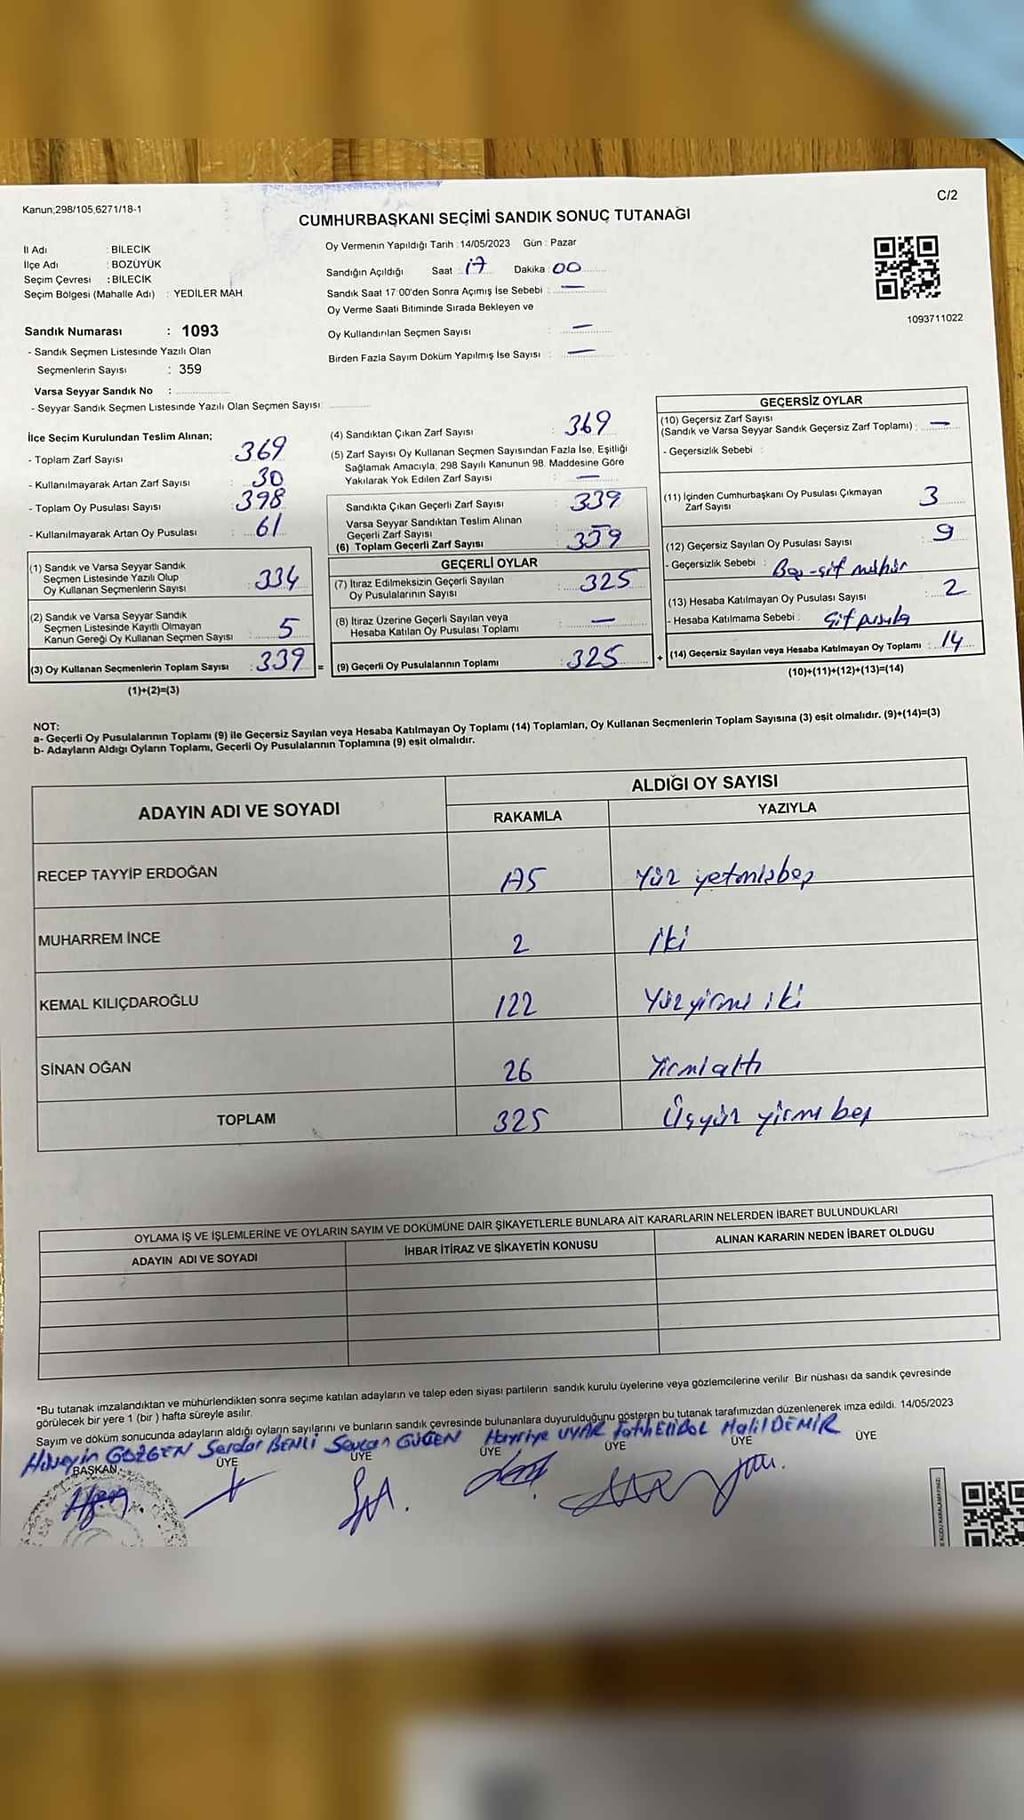 Kanun;298/105,6271/18-1
C/2
CUMHURBAŞKANI SEÇİMİ SANDIK SONUÇ TUTANAĞI
İl Adı : BİLECİK
İlçe Adı : BOZÜYÜK
Seçim Çevresi : BİLECİK
Seçim Bölgesi (Mahalle Adı) : YEDİLER MAH
Oy Vermenin Yapıldığı Tarih :14/05/2023 Gün : Pazar
Sandığın Açıldığı Saat : 17 Dakika : 00
Sandık Saat 17 00'den Sonra Açımış İse Sebebi : —
Oy Verme Saati Bitiminde Sırada Bekleyen ve
Oy Kullandırılan Seçmen Sayısı : —
Birden Fazla Sayım Döküm Yapılmış İse Sayısı : —
1093711022
Sandık Numarası : 1093
- Sandık Seçmen Listesinde Yazılı Olan
Seçmenlerin Sayısı : 359
Varsa Seyyar Sandık No :
- Seyyar Sandık Seçmen Listesinde Yazılı Olan Seçmen Sayısı:
İlce Seçim Kurulundan Teslim Alınan;
- Toplam Zarf Sayısı : 369
- Kullanılmayarak Artan Zarf Sayısı : 30
- Toplam Oy Pusulası Sayısı : 398
- Kullanılmayarak Artan Oy Pusulası : 61
(1) Sandık ve Varsa Seyyar Sandık
Seçmen Listesinde Yazılı Olup
Oy Kullanan Seçmenlerin Sayısı : 334
(2) Sandık ve Varsa Seyyar Sandık
Seçmen Listesinde Kayıtlı Olmayan
Kanun Gereği Oy Kullanan Seçmen Sayısı : 5
(3) Oy Kullanan Seçmenlerin Toplam Sayısı : 339 =
(1)+(2)=(3)
(4) Sandıktan Çıkan Zarf Sayısı : 369
(5) Zarf Sayısı Oy Kullanan Seçmen Sayısından Fazla İse, Eşitliği
Sağlamak Amacıyla, 298 Sayılı Kanunun 98. Maddesine Göre
Yakılarak Yok Edilen Zarf Sayısı : —
Sandıkta Çıkan Geçerli Zarf Sayısı : 339
Varsa Seyyar Sandıktan Teslim Alınan
Geçerli Zarf Sayısı : —
(6) Toplam Geçerli Zarf Sayısı : 339
GEÇERLİ OYLAR
(7) İtiraz Edilmeksizin Geçerli Sayılan
Oy Pusulalarının Sayısı : 325
(8) İtiraz Üzerine Geçerli Sayılan veya
Hesaba Katılan Oy Pusulası Toplamı : —
(9) Geçerli Oy Pusulalarının Toplamı : 325 +
GEÇERSİZ OYLAR
(10) Geçersiz Zarf Sayısı
(Sandık ve Varsa Seyyar Sandık Geçersiz Zarf Toplamı) : —
- Geçersizlik Sebebi :
(11) İçinden Cumhurbaşkanı Oy Pusulası Çıkmayan
Zarf Sayısı : 3
(12) Geçersiz Sayılan Oy Pusulası Sayısı : 9
- Geçersizlik Sebebi : Boş-çift mühür
(13) Hesaba Katılmayan Oy Pusulası Sayısı : 2
- Hesaba Katılmama Sebebi : Çift pusula
(14) Geçersiz Sayılan veya Hesaba Katılmayan Oy Toplamı : 14
(10)+(11)+(12)+(13)=(14)
NOT:
a- Geçerli Oy Pusulalarının Toplamı (9) ile Geçersiz Sayılan veya Hesaba Katılmayan Oy Toplamı (14) Toplamları, Oy Kullanan Seçmenlerin Toplam Sayısına (3) eşit olmalıdır. (9)+(14)=(3)
b- Adayların Aldığı Oyların Toplamı, Geçerli Oy Pusulalarının Toplamına (9) eşit olmalıdır.
ADAYIN ADI VE SOYADI
ALDIĞI OY SAYISI
RAKAMLA YAZIYLA
RECEP TAYYİP ERDOĞAN 175 Yüz yetmişbeş
MUHARREM İNCE 2 İki
KEMAL KILIÇDAROĞLU 122 Yüzyirmi iki
SİNAN OĞAN 26 Yirmialtı
TOPLAM 325 Üçyüz yirmi beş
OYLAMA İŞ VE İŞLEMLERİNE VE OYLARIN SAYIM VE DÖKÜMÜNE DAİR ŞİKAYETLERLE BUNLARA AİT KARARLARIN NELERDEN İBARET BULUNDUKLARI
ADAYIN ADI VE SOYADI İHBAR İTİRAZ VE ŞİKAYETİN KONUSU ALINAN KARARIN NEDEN İBARET OLDUGU
*Bu tutanak imzalandıktan ve mühürlendikten sonra seçime katılan adayların ve talep eden siyası partilerin sandık kurulu üyelerine veya gözlemcilerine verilir Bir nüshası da sandık çevresinde
görülecek bir yere 1 (bir ) hafta süreyle asılır.
Sayım ve döküm sonucunda adayların aldığı oyların sayılarını ve bunların sandık çevresinde bulunanlara duyurulduğunu gösteren bu tutanak tarafımızdan düzenlenerek imza edildi. 14/05/2023
Hüseyin GÖZGEN Serdar BENLİ Sevcan GÜÇEN Hayriye UYAR Fatih ELİBOL Halil DEMİR
BAŞKAN ÜYE ÜYE ÜYE ÜYE ÜYE ÜYE